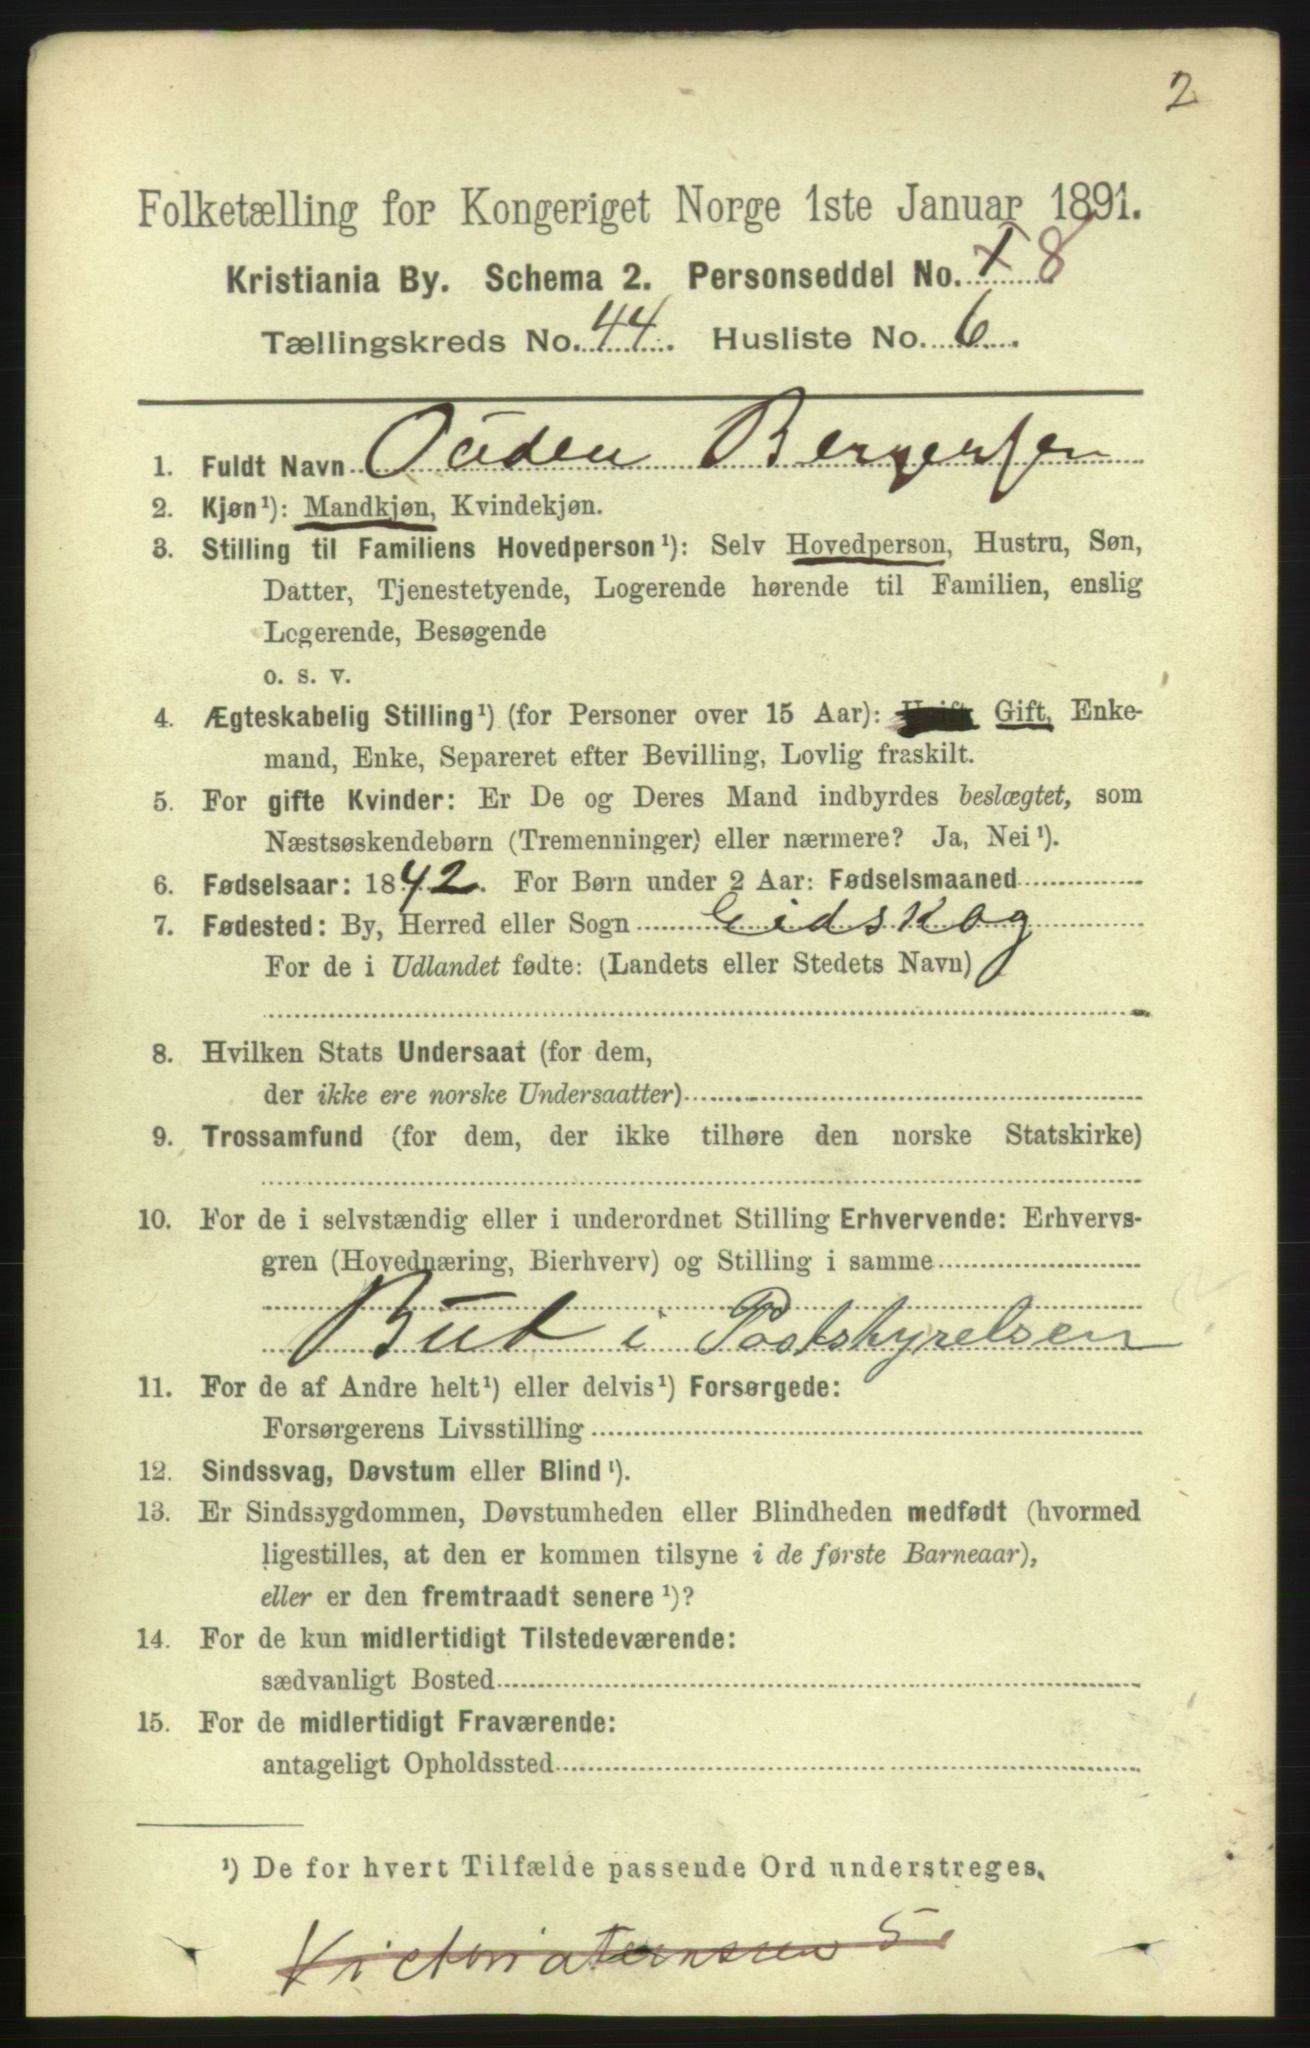 2
Folketælling for Kongeriget Norge 1ste Januar 1891.
Kristiania By. Schema 2. Personseddel No. 8
Tællingskreds No. 44. Husliste No. 6.
1. Fuldt Navn Ouden Bergersen
2. Kjøn¹): Mandkjøn, Kvindekjøn.
3. Stilling til Familiens Hovedperson¹): Selv Hovedperson, Hustru, Søn,
Datter, Tjenestetyende, Logerende hørende til Familien, enslig
Logerende, Besøgende
o. s. v.
4. Ægteskabelig Stilling¹) (for Personer over 15 Aar): Ugift, Gift, Enke-
mand, Enke, Separeret efter Bevilling, Lovlig fraskilt.
5. For gifte Kvinder: Er De og Deres Mand indbyrdes beslægtet, som
Næstsøskendebørn (Tremenninger) eller nærmere? Ja, Nei¹).
6. Fødselsaar: 1842. For Børn under 2 Aar: Fødselsmaaned
7. Fødested: By, Herred eller Sogn Eidskog
For de i Udlandet fødte: (Landets eller Stedets Navn)
8. Hvilken Stats Undersaat (for dem,
der ikke ere norske Undersaatter)
9. Trossamfund (for dem, der ikke tilhøre den norske Statskirke)
10. For de i selvstændig eller i underordnet Stilling Erhvervende: Erhvervs-
gren (Hovednæring, Bierhverv) og Stilling i samme
Bud i Poststyrelsen
11. For de af Andre helt¹) eller delvis¹) Forsørgede:
Forsørgerens Livsstilling
12. Sindssvag, Døvstum eller Blind¹).
13. Er Sindssygdommen, Døvstumheden eller Blindheden medfødt (hvormed
ligestilles, at den er kommen tilsyne i de første Barneaar),
eller er den fremtraadt senere¹)?
14. For de kun midlertidigt Tilstedeværende:
sædvanligt Bosted
15. For de midlertidigt Fraværende:
antageligt Opholdssted
¹) De for hvert Tilfælde passende Ord understreges.
5